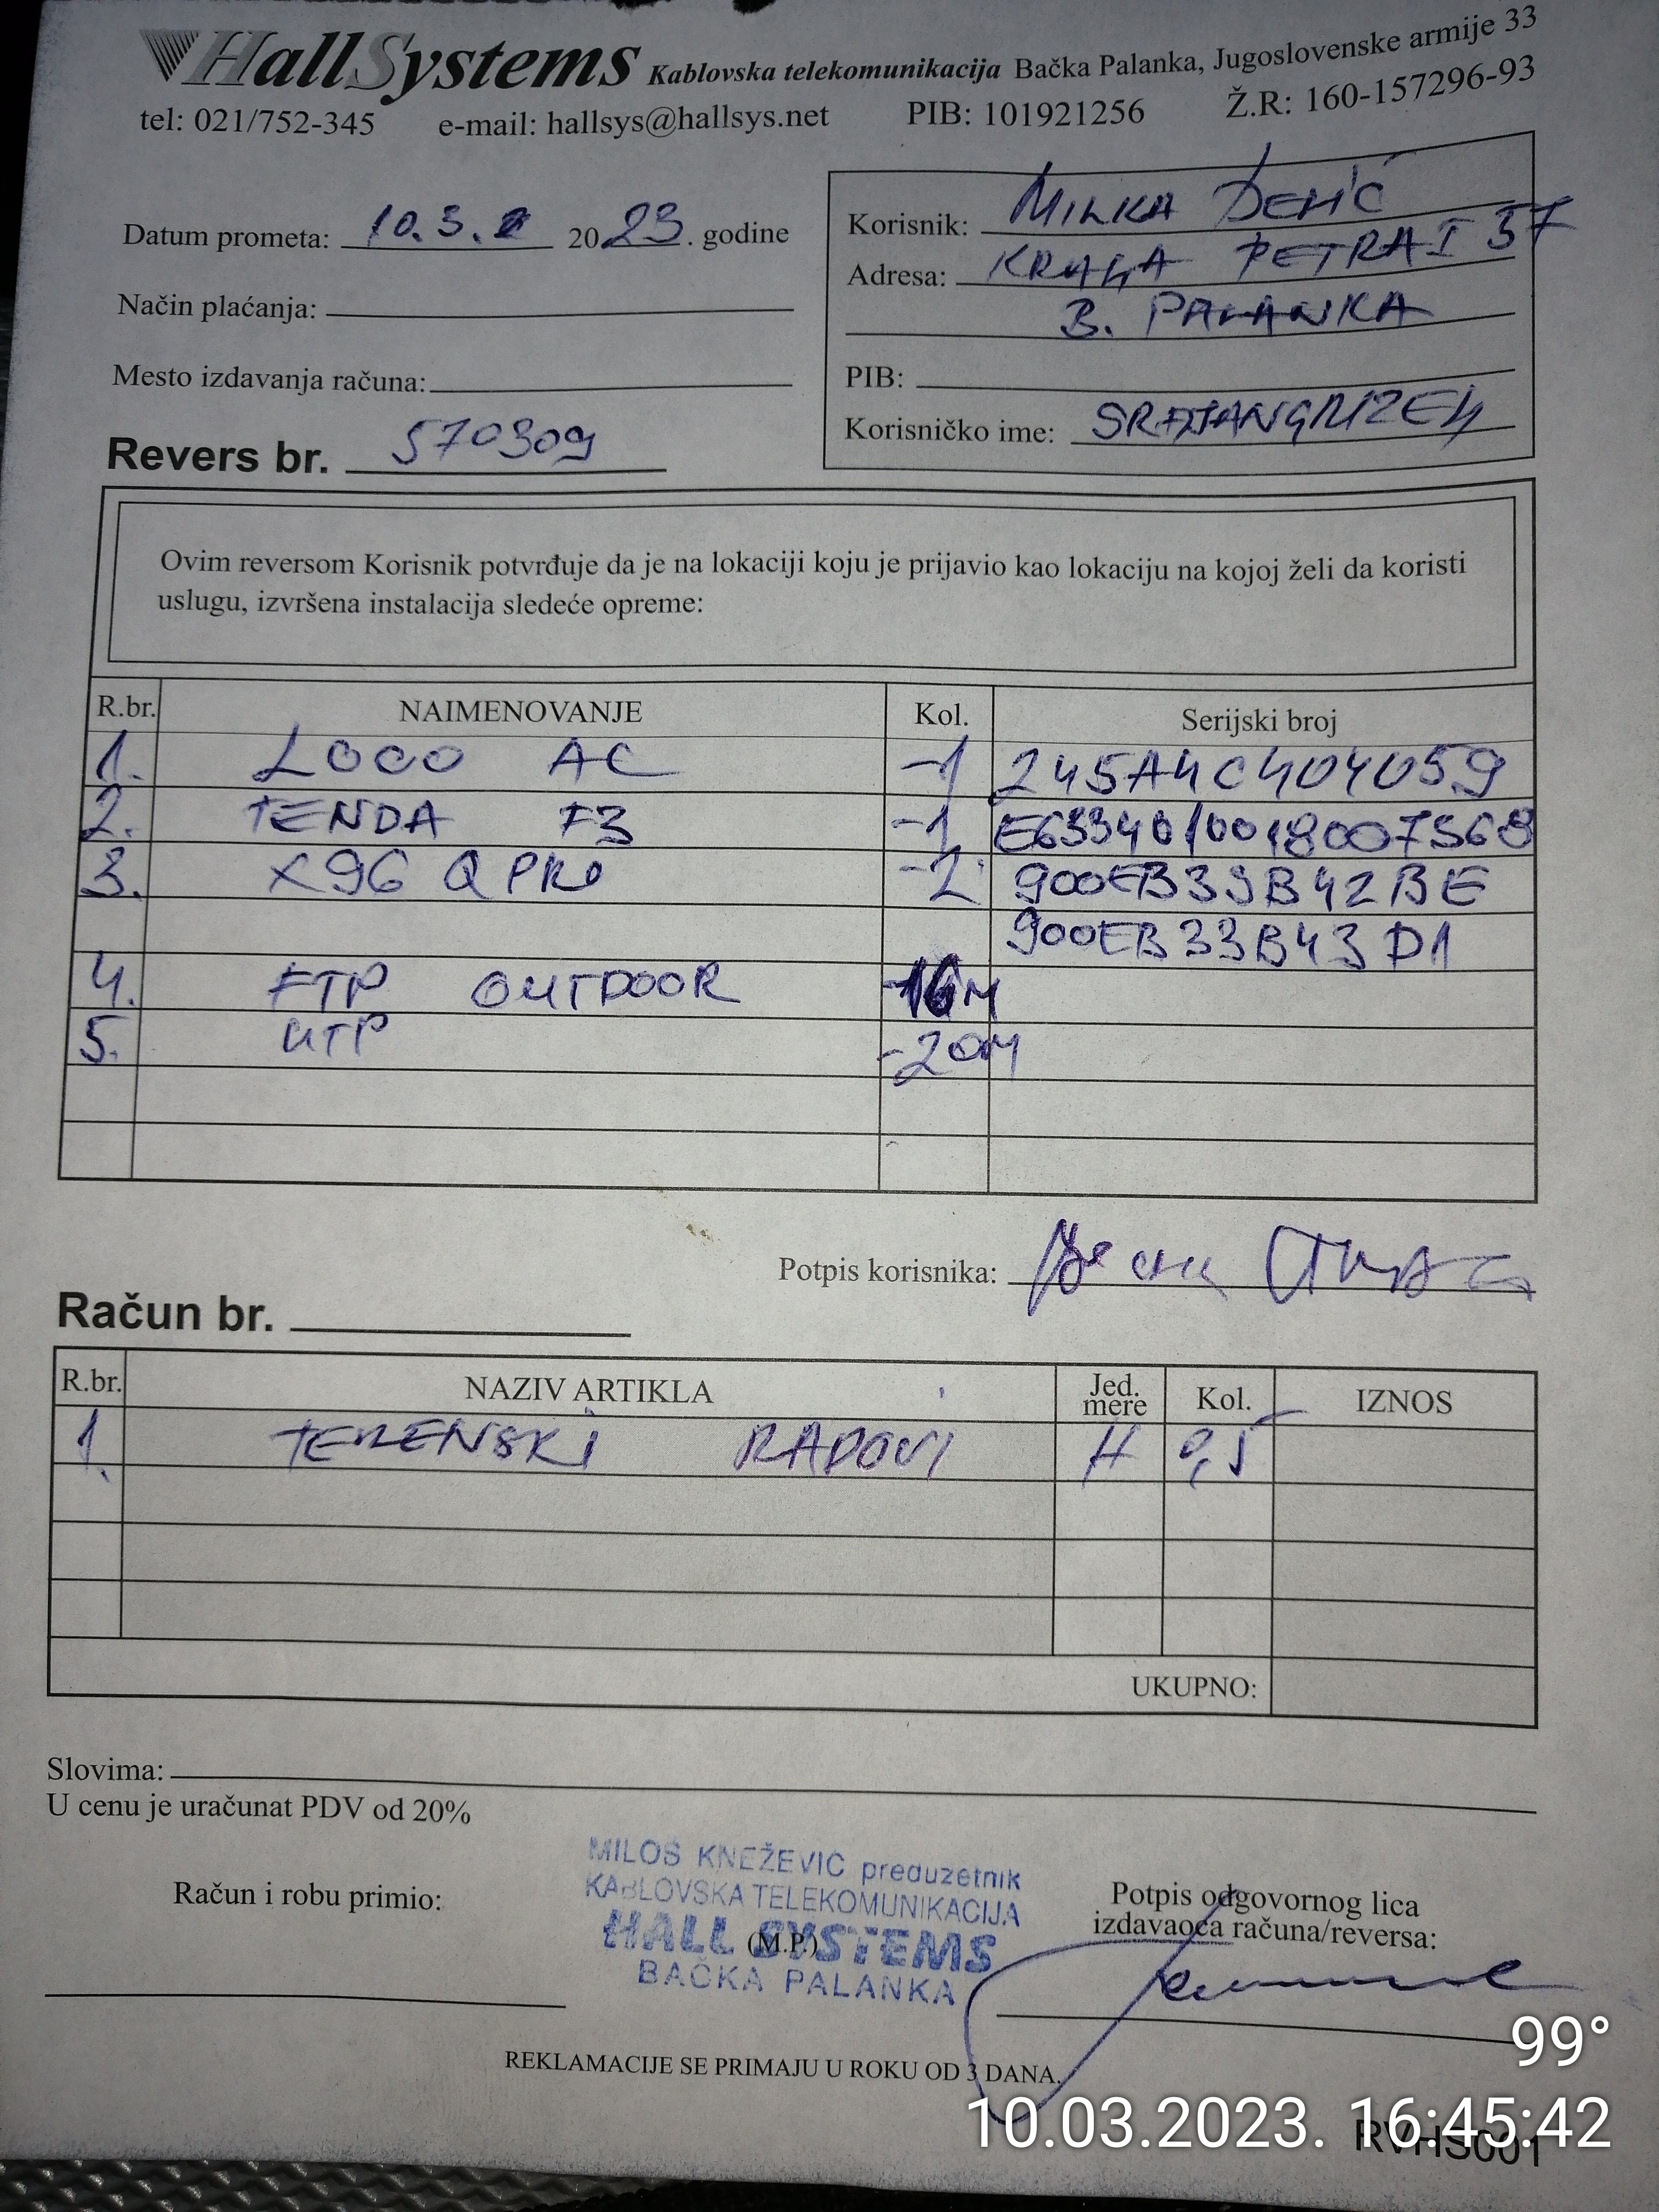 HallSystems Kablovska telekomunikacija Bačka Palanka, Jugoslovenske armije 33
tel: 021/752-345 e-mail: hallsys@hallsys.net PIB: 101921256 Ž.R: 160-157296-93
Datum prometa: 10.3. 2023. godine
Korisnik: MILKA
Adresa: KRALJA PETRA I 37
B. PALANKA
Način plaćanja:
Mesto izdavanja računa:
PIB:
Korisničko ime:
Revers br. 570309
Ovim reversom Korisnik potvrđuje da je na lokaciji koju je prijavio kao lokaciju na kojoj želi da koristi
uslugu, izvršena instalacija sledeće opreme:
R.br. NAIMENOVANJE Kol. Serijski broj
1. LOCO AC -1 245A4C404059
2. TENDA F3 -1
3. X96 Q PRO -2 900EB33B42BE
900EB33B43D1
4. FTP OUTDOOR -16M
5. UTP -20M
Potpis korisnika:
Račun br.
R.br. NAZIV ARTIKLA Jed. mere Kol. IZNOS
1. TERENSKI RADOVI H 0,5
UKUPNO:
Slovima:
U cenu je uračunat PDV od 20%
MILOŠ KNEŽEVIĆ preduzetnik
KABLOVSKA TELEKOMUNIKACIJA
HALL SYSTEMS
BAČKA PALANKA
Račun i robu primio:
(M.P.)
Potpis odgovornog lica
izdavaoca računa/reversa:
REKLAMACIJE SE PRIMAJU U ROKU OD 3 DANA.
99°
10.03.2023. 16:45:42
RVHS001